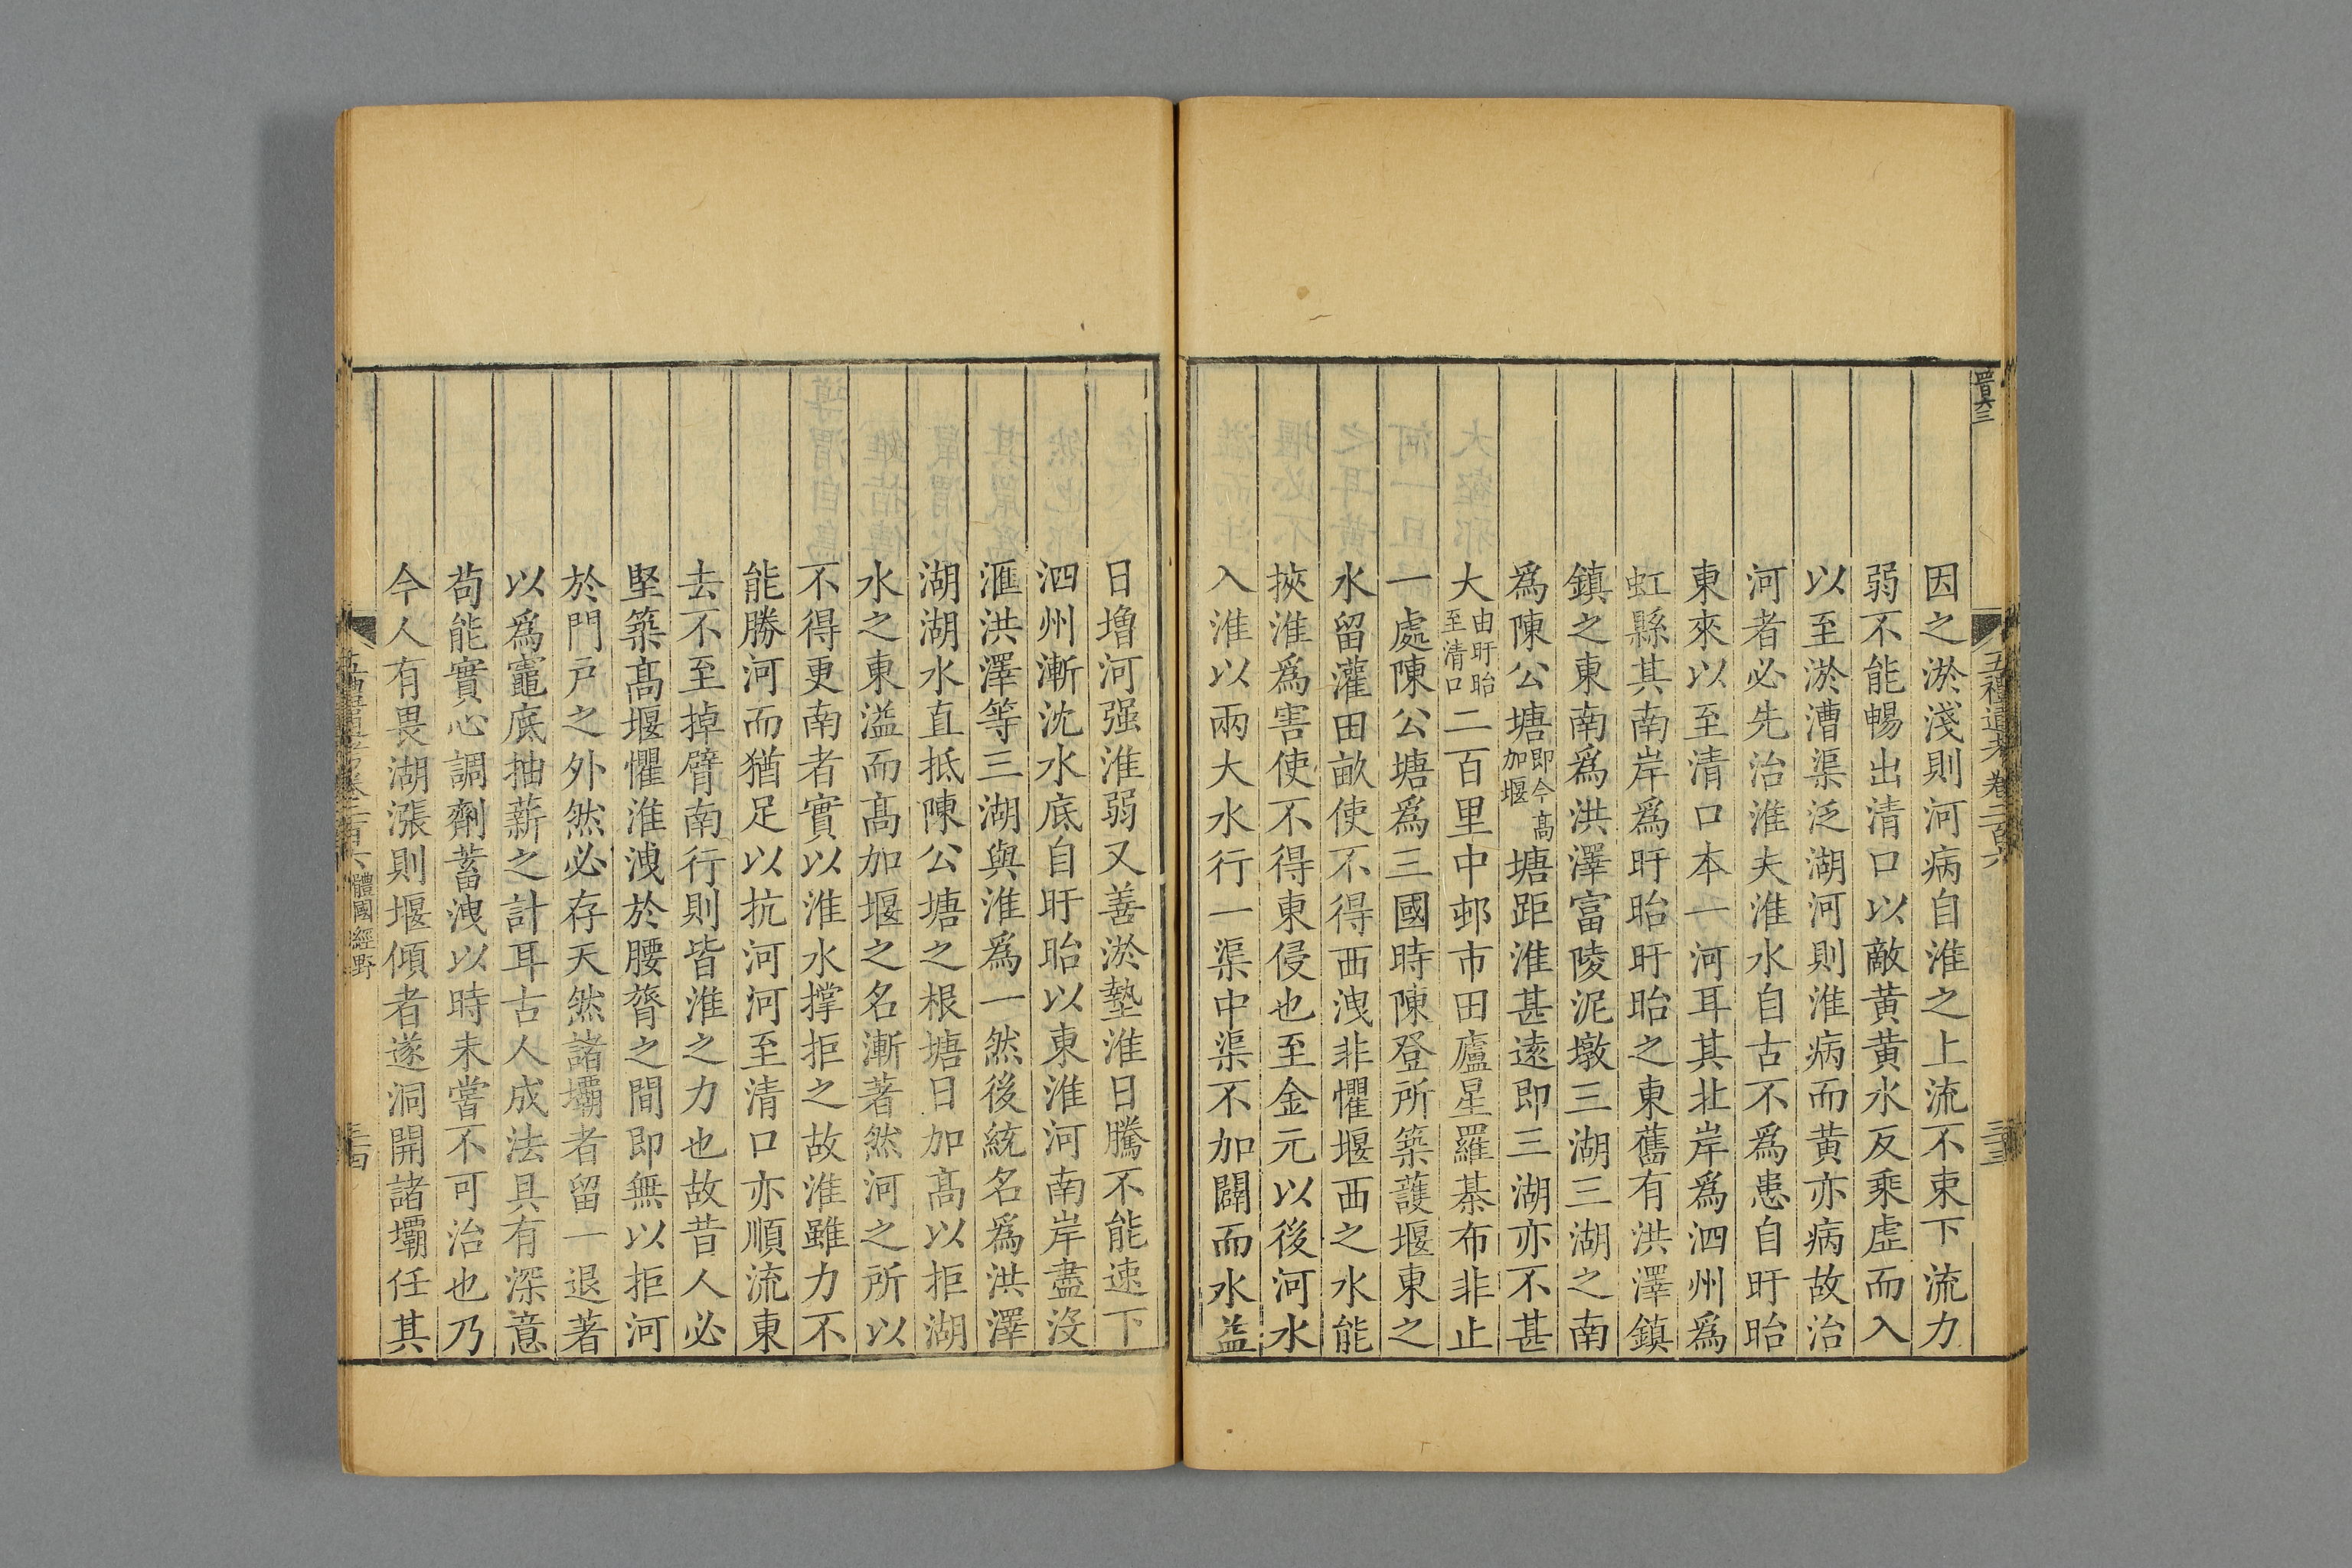 因之淤淺則河病自淮之上流不東下流力
弱不能暢出清口以敵黄黄水反乘虛而入
以至淤漕渠泛湖河則淮病而黄亦病故治
河者必先治淮夫淮水自古不爲患自盱眙
東來以至清口本一河耳其北岸爲泗州爲
虹縣其南岸爲盱眙盱眙之東舊有洪澤鎮
鎮之東南爲洪澤富陵泥墩三湖三湖之南
爲陳公塘即今高加堰塘距淮甚遠即三湖亦不甚
大由盱眙至清口二百里中邨市田廬星羅棊布非止
一處陳公塘爲三國時陳登所築䕶堰東之
水留灌田畝使不得西洩非懼堰西之水能
挾淮爲害使不得東侵也至金元以後河水
入淮以兩大水行一渠中渠不加闢而水益
日增河强淮弱又善淤墊淮日騰不能速下
泗州漸沈水底自盱眙以東淮河南岸盡沒
滙洪澤等三湖與淮爲一然後統名爲洪澤
湖湖水直抵陳公塘之根塘日加髙以拒湖
水之東溢而髙加堰之名漸著然河之所以
不得更南者實以淮水撑拒之故淮雖力不
能勝河而猶足以抗河河至清口亦順流東
去不至掉臂南行則皆淮之力也故昔人必
堅築髙堰懼淮洩於腰膂之間即無以拒河
於門戸之外然必存天然諸壩者留一退著
以爲竈底抽薪之計耳古人成法具有深意
苟能實心調劑蓄洩以時未嘗不可治也乃
今人有畏湖漲則堰傾者遂洞開諸壩任其
五禮通考卷二百六
三三
卷二百六 體國經野
三四